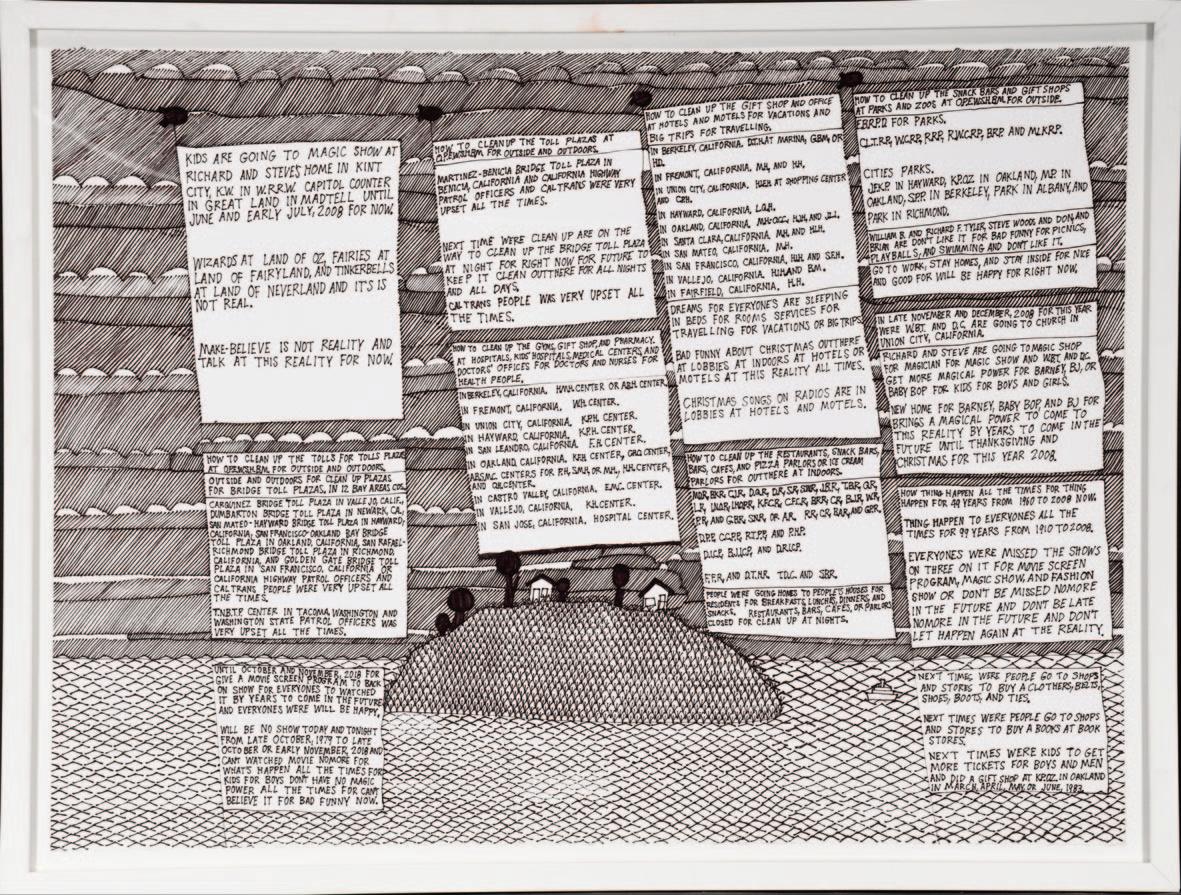 KIDS ARE GOING TO MAGIC SHOW AT
RICHARD AND STEVE'S HOME IN KINT
CITY, K.W. IN W.R.R.W. CAPITOL COUNTER
IN GREAT LAND IN MADTELL UNTIL
JUNE AND EARLY JULY, 2008 FOR NOW.
WIZARDS AT LAND OF OZ, FAIRIES AT
LAND OF FAIRYLAND, AND TINKERBELLS
AT LAND OF NEVERLAND AND IT'S IS
NOT REAL.
MAKE-BELIEVE IS NOT REALITY AND
TALK AT THIS REALITY FOR NOW.
HOW TO CLEAN UP THE TOLLS FOR TOLLS PLAZAS
AT O.P.E.W.S.H.B.M. FOR OUTSIDE AND OUTDOORS.
OUTSIDE AND OUTDOORS FOR CLEAN UP PLAZAS
FOR BRIDGE TOLL PLAZAS, IN 12 BAY AREAS COS.
CARQUINEZ BRIDGE TOLL PLAZA IN VALLEJO, CALIF.,
DUMBARTON BRIDGE TOLL PLAZA IN NEWARK, CA.,
SAN MATEO-HAYWARD BRIDGE TOLL PLAZA IN HAYWARD,
CALIFORNIA, SAN FRANCISCO-OAKLAND BAY BRIDGE
TOLL PLAZA IN OAKLAND, CALIFORNIA, SAN RAFAEL-
RICHMOND BRIDGE TOLL PLAZA IN RICHMOND,
CALIFORNIA, AND GOLDEN GATE BRIDGE TOLL
PLAZA IN SAN FRANCISCO, CALIFORNIA OR
CALIFORNIA HIGHWAY PATROL OFFICERS AND
CALTRANS PEOPLE WERE VERY UPSET ALL
THE TIMES.
T.N.B.T.P. CENTER IN TACOMA, WASHINGTON AND
WASHINGTON STATE PATROL OFFICERS WAS
VERY UPSET ALL THE TIMES.
UNTIL OCTOBER AND NOVEMBER, 2018 FOR
GIVE A MOVIE SCREEN PROGRAM TO BACK
ON SHOW FOR EVERYONES TO WATCHED
IT BY YEARS TO COME IN THE FUTURE
AND EVERYONES WERE WILL BE HAPPY.
WILL BE NO SHOW TODAY AND TONIGHT
FROM LATE OCTOBER, 1979 TO LATE
OCTOBER OR EARLY NOVEMBER, 2018 AND
CAN'T WATCHED MOVIE NOMORE FOR
WHAT'S HAPPEN ALL THE TIMES FOR
KIDS FOR BOYS DON'T HAVE NO MAGIC
POWER ALL THE TIMES FOR CAN'T
BELIEVE IT FOR BAD FUNNY NOW.
HOW TO CLEAN UP THE TOLL PLAZAS AT
O.P.E.W.S.H.B.M. FOR OUTSIDE AND OUTDOORS.
MARTINEZ-BENICIA BRIDGE TOLL PLAZA IN
BENICIA, CALIFORNIA AND CALIFORNIA HIGHWAY
PATROL OFFICERS AND CALTRANS WERE VERY
UPSET ALL THE TIMES.
NEXT TIME WERE CLEAN UP ARE ON THE
WAY TO CLEAN UP THE BRIDGE TOLL PLAZA
AT NIGHT FOR RIGHT NOW FOR FUTURE TO
KEEP IT CLEAN OUTTHERE FOR ALL NIGHTS
AND ALL DAYS.
CALTRANS PEOPLE WAS VERY UPSET ALL
THE TIMES.
HOW TO CLEAN UP THE GYMS, GIFT SHOP, AND PHARMACY.
AT HOSPITALS, KIDS' HOSPITALS, MEDICAL CENTERS, AND
DOCTORS' OFFICES FOR DOCTORS AND NURSES FOR
HEALTH PEOPLE.
IN BERKELEY, CALIFORNIA. CENTER OR A.B.H. CENTER.
IN FREMONT, CALIFORNIA. W.H. CENTER.
IN UNION CITY, CALIFORNIA. K.P.H. CENTER.
IN HAYWARD, CALIFORNIA. K.P.H. CENTER.
IN SAN LEANDRO, CALIFORNIA. F.H. CENTER.
IN OAKLAND, CALIFORNIA. K.F.H. CENTER, CENTER,
CENTERS FOR P.H., S.M.H. OR M.H., H.H. CENTER,
AND CENTER.
IN CASTRO VALLEY, CALIFORNIA. E.M.C. CENTER.
IN VALLEJO, CALIFORNIA. K.H. CENTER.
IN SAN JOSE, CALIFORNIA. HOSPITAL CENTER.
HOW TO CLEAN UP THE GIFT SHOP AND OFFICE
AT HOTELS AND MOTELS FOR VACATIONS AND
BIG TRIPS FOR TRAVELLING.
IN BERKELEY, CALIFORNIA. AT MARINA, G.B.M., OR
H.D.
IN FREMONT, CALIFORNIA. M.H., AND H.H.
IN UNION CITY, CALIFORNIA. AT SHOPPING CENTER
AND C.P.H.
IN HAYWARD, CALIFORNIA. L.Q.H.
IN OAKLAND, CALIFORNIA. H.J.H., AND J.L.I.
IN SANTA CLARA, CALIFORNIA. M.H. AND H.L.H.
IN SAN MATEO, CALIFORNIA. M.H.
IN SAN FRANCISCO, CALIFORNIA. H.I.H. AND S.F.H.
IN VALLEJO, CALIFORNIA. H.I.H. AND B.M.
IN FAIRFIELD, CALIFORNIA. H.H.
DREAMS FOR EVERYONE'S ARE SLEEPING
IN BEDS FOR ROOMS SERVICES FOR
TRAVELLING FOR VACATIONS OR BIG TRIPS.
BAD FUNNY ABOUT CHRISTMAS OUTTHERE
AT LOBBIES AT INDOORS AT HOTELS OR
MOTELS AT THIS REALITY ALL TIMES.
CHRISTMAS SONGS ON RADIOS ARE IN
LOBBIES AT HOTELS AND MOTELS.
HOW TO CLEAN UP THE RESTAURANTS, SNACK BARS,
BARS, CAFES, AND PIZZA PARLORS OR ICE CREAM
PARLORS FOR OUTTHERE AT INDOORS.
F.F.R., AND D.T.H.R. T.D.C. AND S.B.R.
PEOPLE WERE GOING HOMES TO PEOPLE'S HOUSES FOR
RESIDENTS FOR BREAKFASTS, LUNCHES, DINNERS, AND
SNACKS. RESTAURANTS, BARS, CAFES, OR PARLORS
CLOSED FOR CLEAN UP AT NIGHTS.
HOW TO CLEAN UP THE SNACK BARS AND GIFT SHOPS
AT PARKS AND ZOOS AT O.P.E.W.S.H.B.M. FOR OUTSIDE.
E.B.R.P.D. FOR PARKS.
C.L.T.R.P., W.C.R.P., R.R.P., R.W.C.R.P., B.R.P. AND M.L.K.R.P.
CITIES PARKS.
J.E.K.P. IN HAYWARD, K.P.O.Z. IN OAKLAND, M.P. IN
OAKLAND, S.P.P. IN BERKELEY, PARK IN ALBANY, AND
PARK IN RICHMOND.
WILLIAM B. AND RICHARD F. TYLER, STEVE WOODS AND DON, AND
BRIAN ARE DON'T LIKE IT FOR BAD FUNNY FOR PICNICS,
PLAY BALLS, AND SWIMMING AND DON'T LIKE IT.
GO TO WORK, STAY HOMES, AND STAY INSIDE FOR NICE
AND GOOD FOR WILL BE HAPPY FOR RIGHT NOW.
IN LATE NOVEMBER AND DECEMBER, 2008 FOR THIS YEAR
WERE W.B.T. AND D.C. ARE GOING TO CHURCH IN
UNION CITY, CALIFORNIA.
RICHARD AND STEVE ARE GOING TO MAGIC SHOP
FOR MAGICIAN FOR MAGIC SHOW AND W.B.T. AND D.C.
GET MORE MAGICAL POWER FOR BARNEY, BJ, OR
BABY BOP FOR KIDS FOR BOYS AND GIRLS.
NEW HOME FOR BARNEY, BABY BOP, AND BJ FOR
BRINGS A MAGICAL POWER TO COME TO
THIS REALITY BY YEARS TO COME IN THE
FUTURE UNTIL THANKSGIVING AND
CHRISTMAS FOR THIS YEAR 2008.
HOW THING HAPPEN ALL THE TIMES FOR THING
HAPPEN FOR 99 YEARS FROM 1910 TO 2008 NOW.
THING HAPPEN TO EVERYONES ALL THE
TIMES FOR 99 YEARS FROM 1910 TO 2008.
EVERYONES WERE MISSED THE SHOWS
ON THREE ON IT FOR MOVIE SCREEN
PROGRAM, MAGIC SHOW, AND FASHION
SHOW OR DON'T BE MISSED NOMORE
IN THE FUTURE AND DON'T BE LATE
NOMORE IN THE FUTURE AND DON'T
LET HAPPEN AGAIN AT THE REALITY.
NEXT TIMES WERE PEOPLE GO TO SHOPS
AND STORES TO BUY A CLOTHERS, BELTS,
SHOES, BOOTS, AND TIES.
NEXT TIMES WERE PEOPLE GO TO SHOPS
AND STORES TO BUY A BOOKS AT BOOK
STORES.
NEXT TIMES WERE KIDS TO GET
MORE TICKETS FOR BOYS AND MEN
AND DID A GIFT SHOP AT K.P.O.Z. IN OAKLAND
IN MARCH, APRIL, MAY, OR JUNE, 1983.